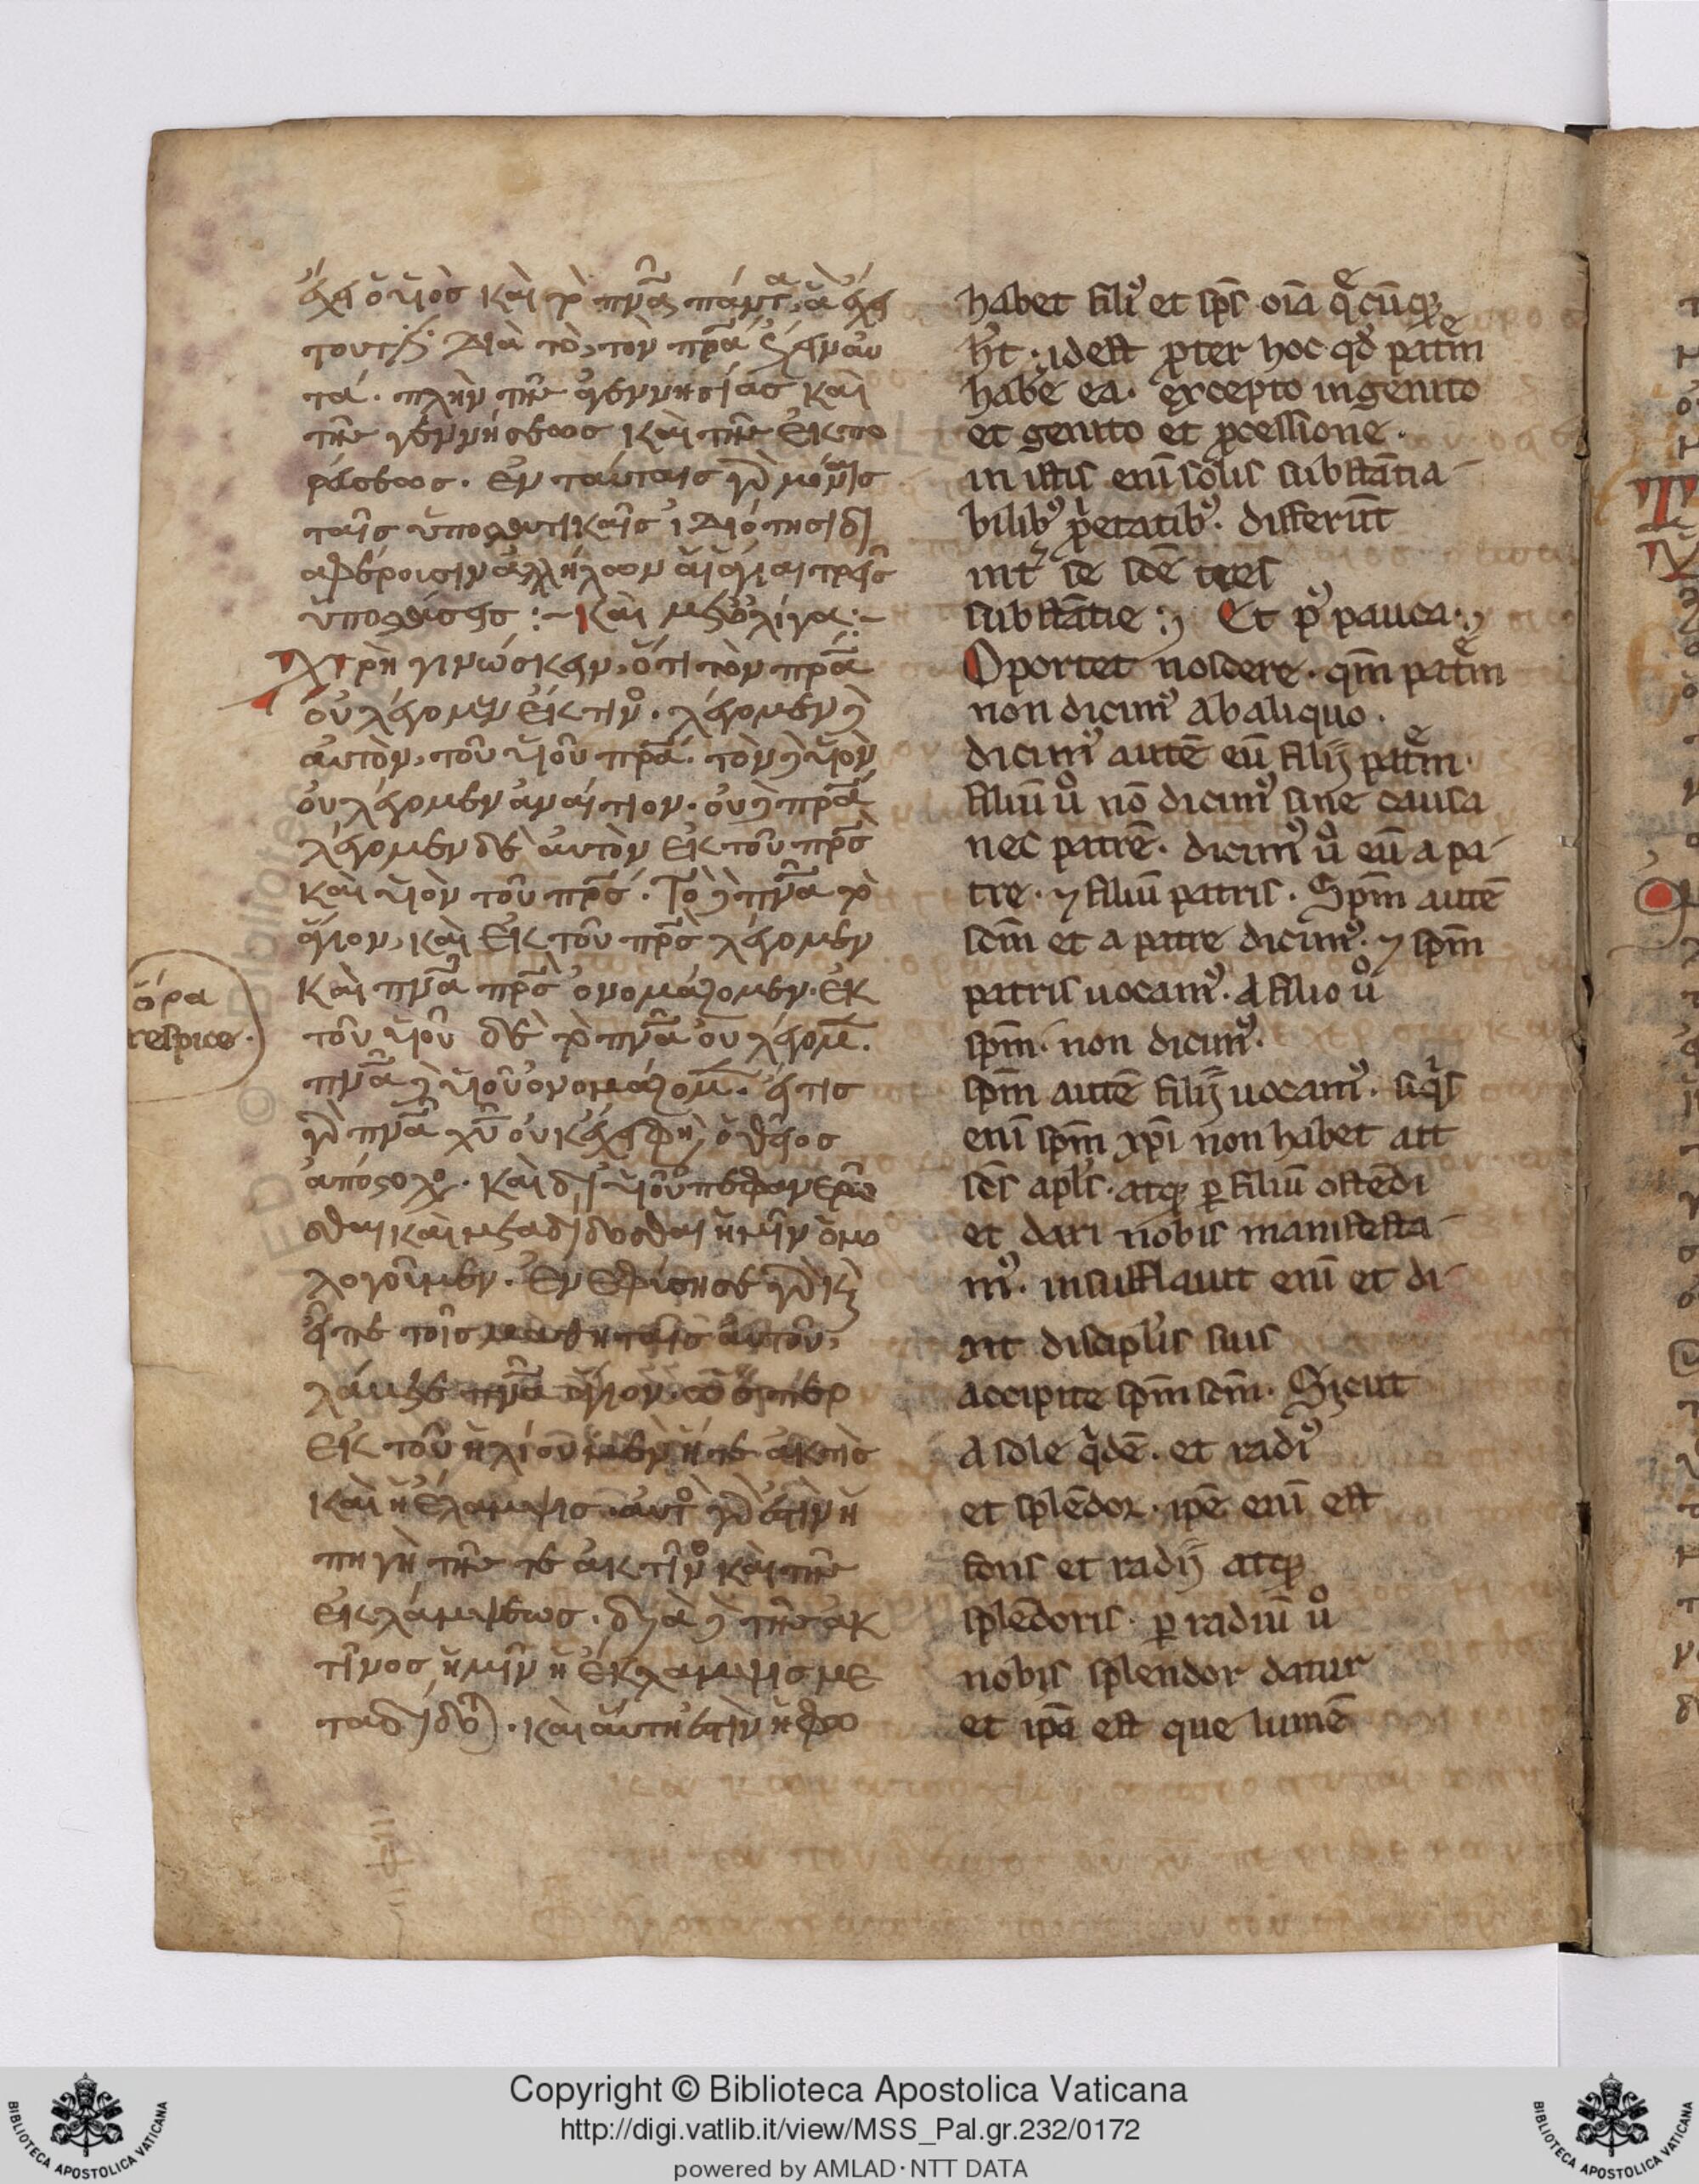 ἔχει ὁ υἱὸς καὶ τὸ πνᾶ πάντα ἃ ἔχει
τουτέστι διὰ τὸ τὸν πρᾶ ἔχειν αὐ
τά. πλὴν τῆς ἀγεννησίας καὶ
τῆς γεννήσεως καὶ τῆς ἐκπο
ρεύσεως. ἐν ταύταις γὰρ μόναις
ταῖς ὑποστατικαῖς ἰδιότησι δι
αφέρουσιν ἀλλήλων αἱ ἅγιαι τρεῖς
ὑποστάσεις :- Καὶ μετ' ὀλίγα :-
Χρὴ γινώσκειν, ὅτι τὸν πρᾶ
οὐ λέγομεν ἔκ τινος. λέγομεν δὲ
αὐτὸν, τοῦ υἱοῦ πρᾶ. τὸν δὲ υἱὸν
οὐ λέγομεν ἀναίτιον. οὐδὲ πρᾶ
λέγομεν δὲ αὐτὸν ἐκ τοῦ πρς
καὶ υἱὸν τοῦ πρς. Τὸ δὲ πνᾶ τὸ
ἅγιον, καὶ ἐκ τοῦ πρς λέγομεν
Καὶ πνᾶ πρς ὀνομάζομεν. ἐκ
τοῦ υἱοῦ δὲ τὸ πνᾶ οὐ λέγομεν.
πνᾶ δὲ υἱοῦ ὀνομάζομεν. εἴ τις
γὰρ πνᾶ χυ οὐκ ἔχει φησὶν ὁ θεῖος
ἀπόστολος. καὶ δι' υἱοῦ πεφανερῶ
σθαι καὶ μεταδίδοσθαι ἡμῖν ὁμο
λογοῦμεν. Ἐνεφύσησε γὰρ καὶ
εἶπε τοῖς μαθηταῖς αὐτοῦ,
λάβετε πνᾶ ἅγιον. ὥσπερ
ἐκ τοῦ ἡλίου μὲν ἥ τε ἀκτὶς
καὶ ἡ ἔλαμψις. αὐτὸς γὰρ ἐστιν ἡ
πηγὴ τῆς τε ἀκτῖνος καὶ τῆς
ἐκλάμψεως. διὰ δὲ τῆς ἀκ
τῖνος ἡμῖν ἡ ἔκλαμψις με
ταδίδοται. καὶ αὕτη ἐστὶν ἡ φω
ὅρα
respice.
habet filiꝰ et sp̄s oīa quecūqꝫ
h̄t. idest ꝓpter hoc qđ patrem
habē ea. excepto ingenito
et genito et ꝓcessione.
in istis enī solis substātia-
bilibꝰ ꝓprietatibꝰ. differūt
int̄ se scē tres
substātie :, Et pꝰ pauca.,
Oportet noscere. qm̄ patrem
non dicimꝰ ab aliquo.
dicimꝰ autē eū filij patrem.
filiū uͦ nō dicimꝰ sine causa
nec patrē. dicimꝰ uͦ eū a pa-
tre. ⁊ filiū patris. Spm̄ autē
scm̄ et a patre dicimꝰ. ⁊ spm̄
patris uocamꝰ. A filio uͦ
spm̄. non dicimꝰ.
spm̄ autē filij uocamꝰ. siqͥs
enī spm̄ xp̄i non habet ait
scs̄ apls̄. atqꝫ ꝑ filiū ostēdi
et dari nobis manifesta-
mꝰ. insufflauit enī et di-
xit discipl'is suis
accipite spm̄ scm̄. Sicut
A sole qͥdē. et radiꝰ
et splēdor. ipē enī est
fons et radij atqꝫ
splēdoris. ꝑ radiū uͦ
nobis splendor datur
et ipā est que lumē
Copyright © Biblioteca Apostolica Vaticana
http://digi.vatlib.it/view/MSS_Pal.gr.232/0172
powered by AMLAD·NTT DATA
BIBLIOTECA APOSTOLICA VATICANA
BIBLIOTECA APOSTOLICA VATICANA